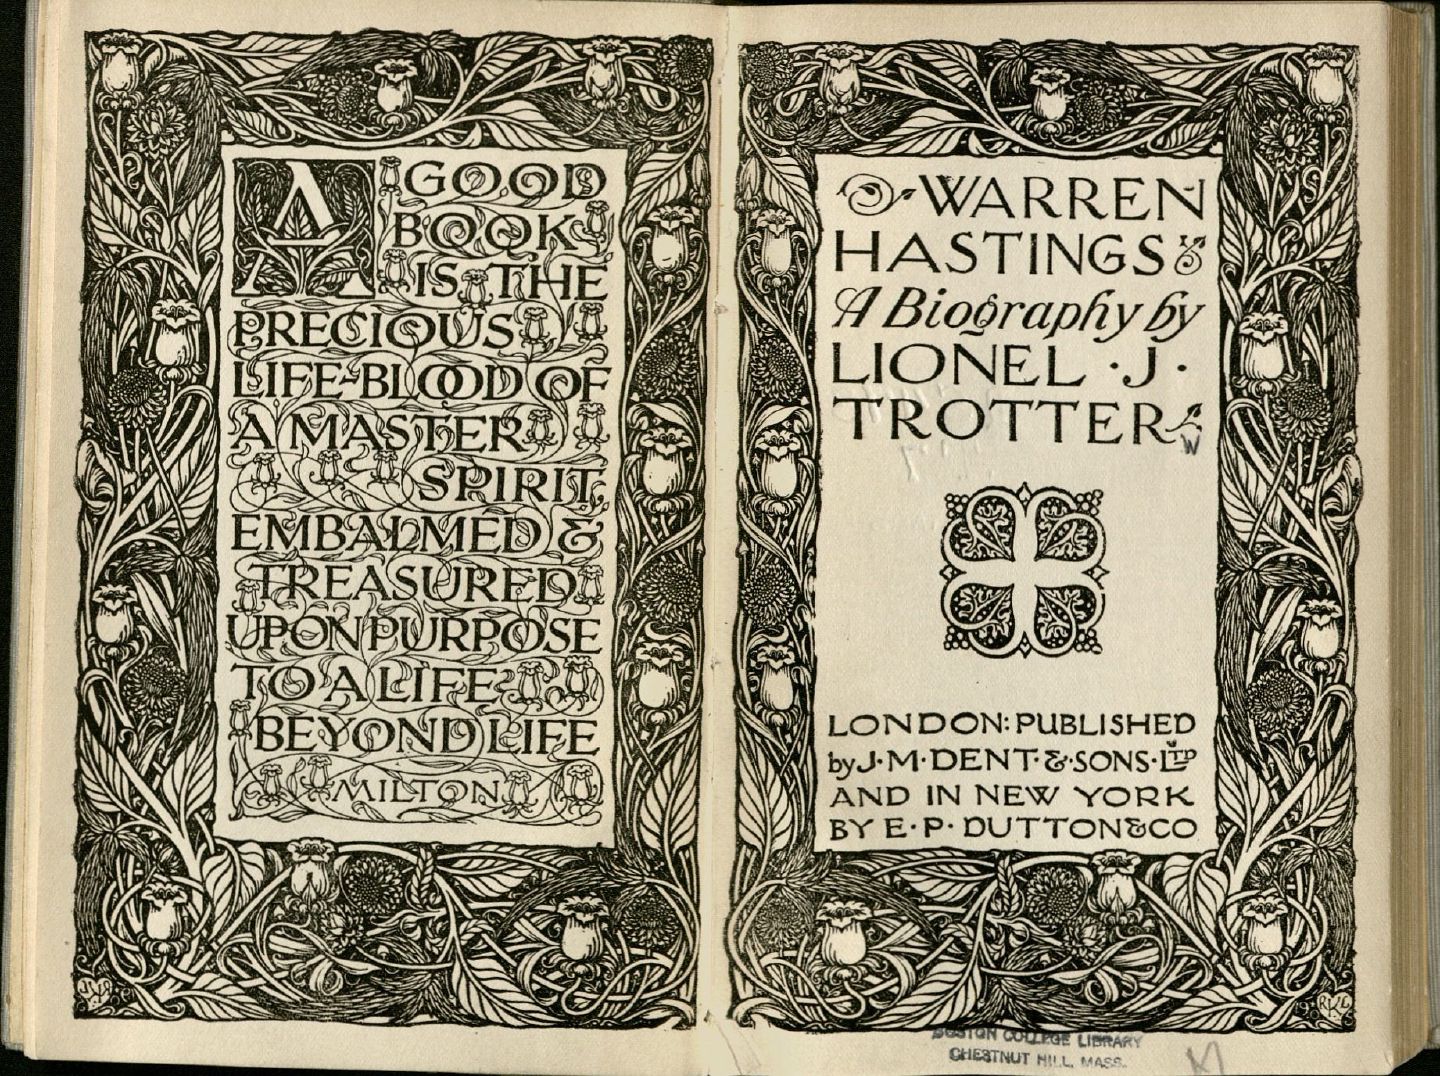 A GOOD
BOOK
IS THE
PRECIOUS
LIFE-BLOOD OF
A MASTER
SPIRIT,
EMBALMED &
TREASURED
UPON PURPOSE
TO A LIFE
BEYOND LIFE
MILTON
WARREN
HASTINGS
A Biography by
LIONEL · J ·
TROTTER
W
LONDON: PUBLISHED
by J · M · DENT · & · SONS · LTD
AND IN NEW YORK
BY E · P · DUTTON & CO
RLK
BOSTON COLLEGE LIBRARY
CHESTNUT HILL, MASS.